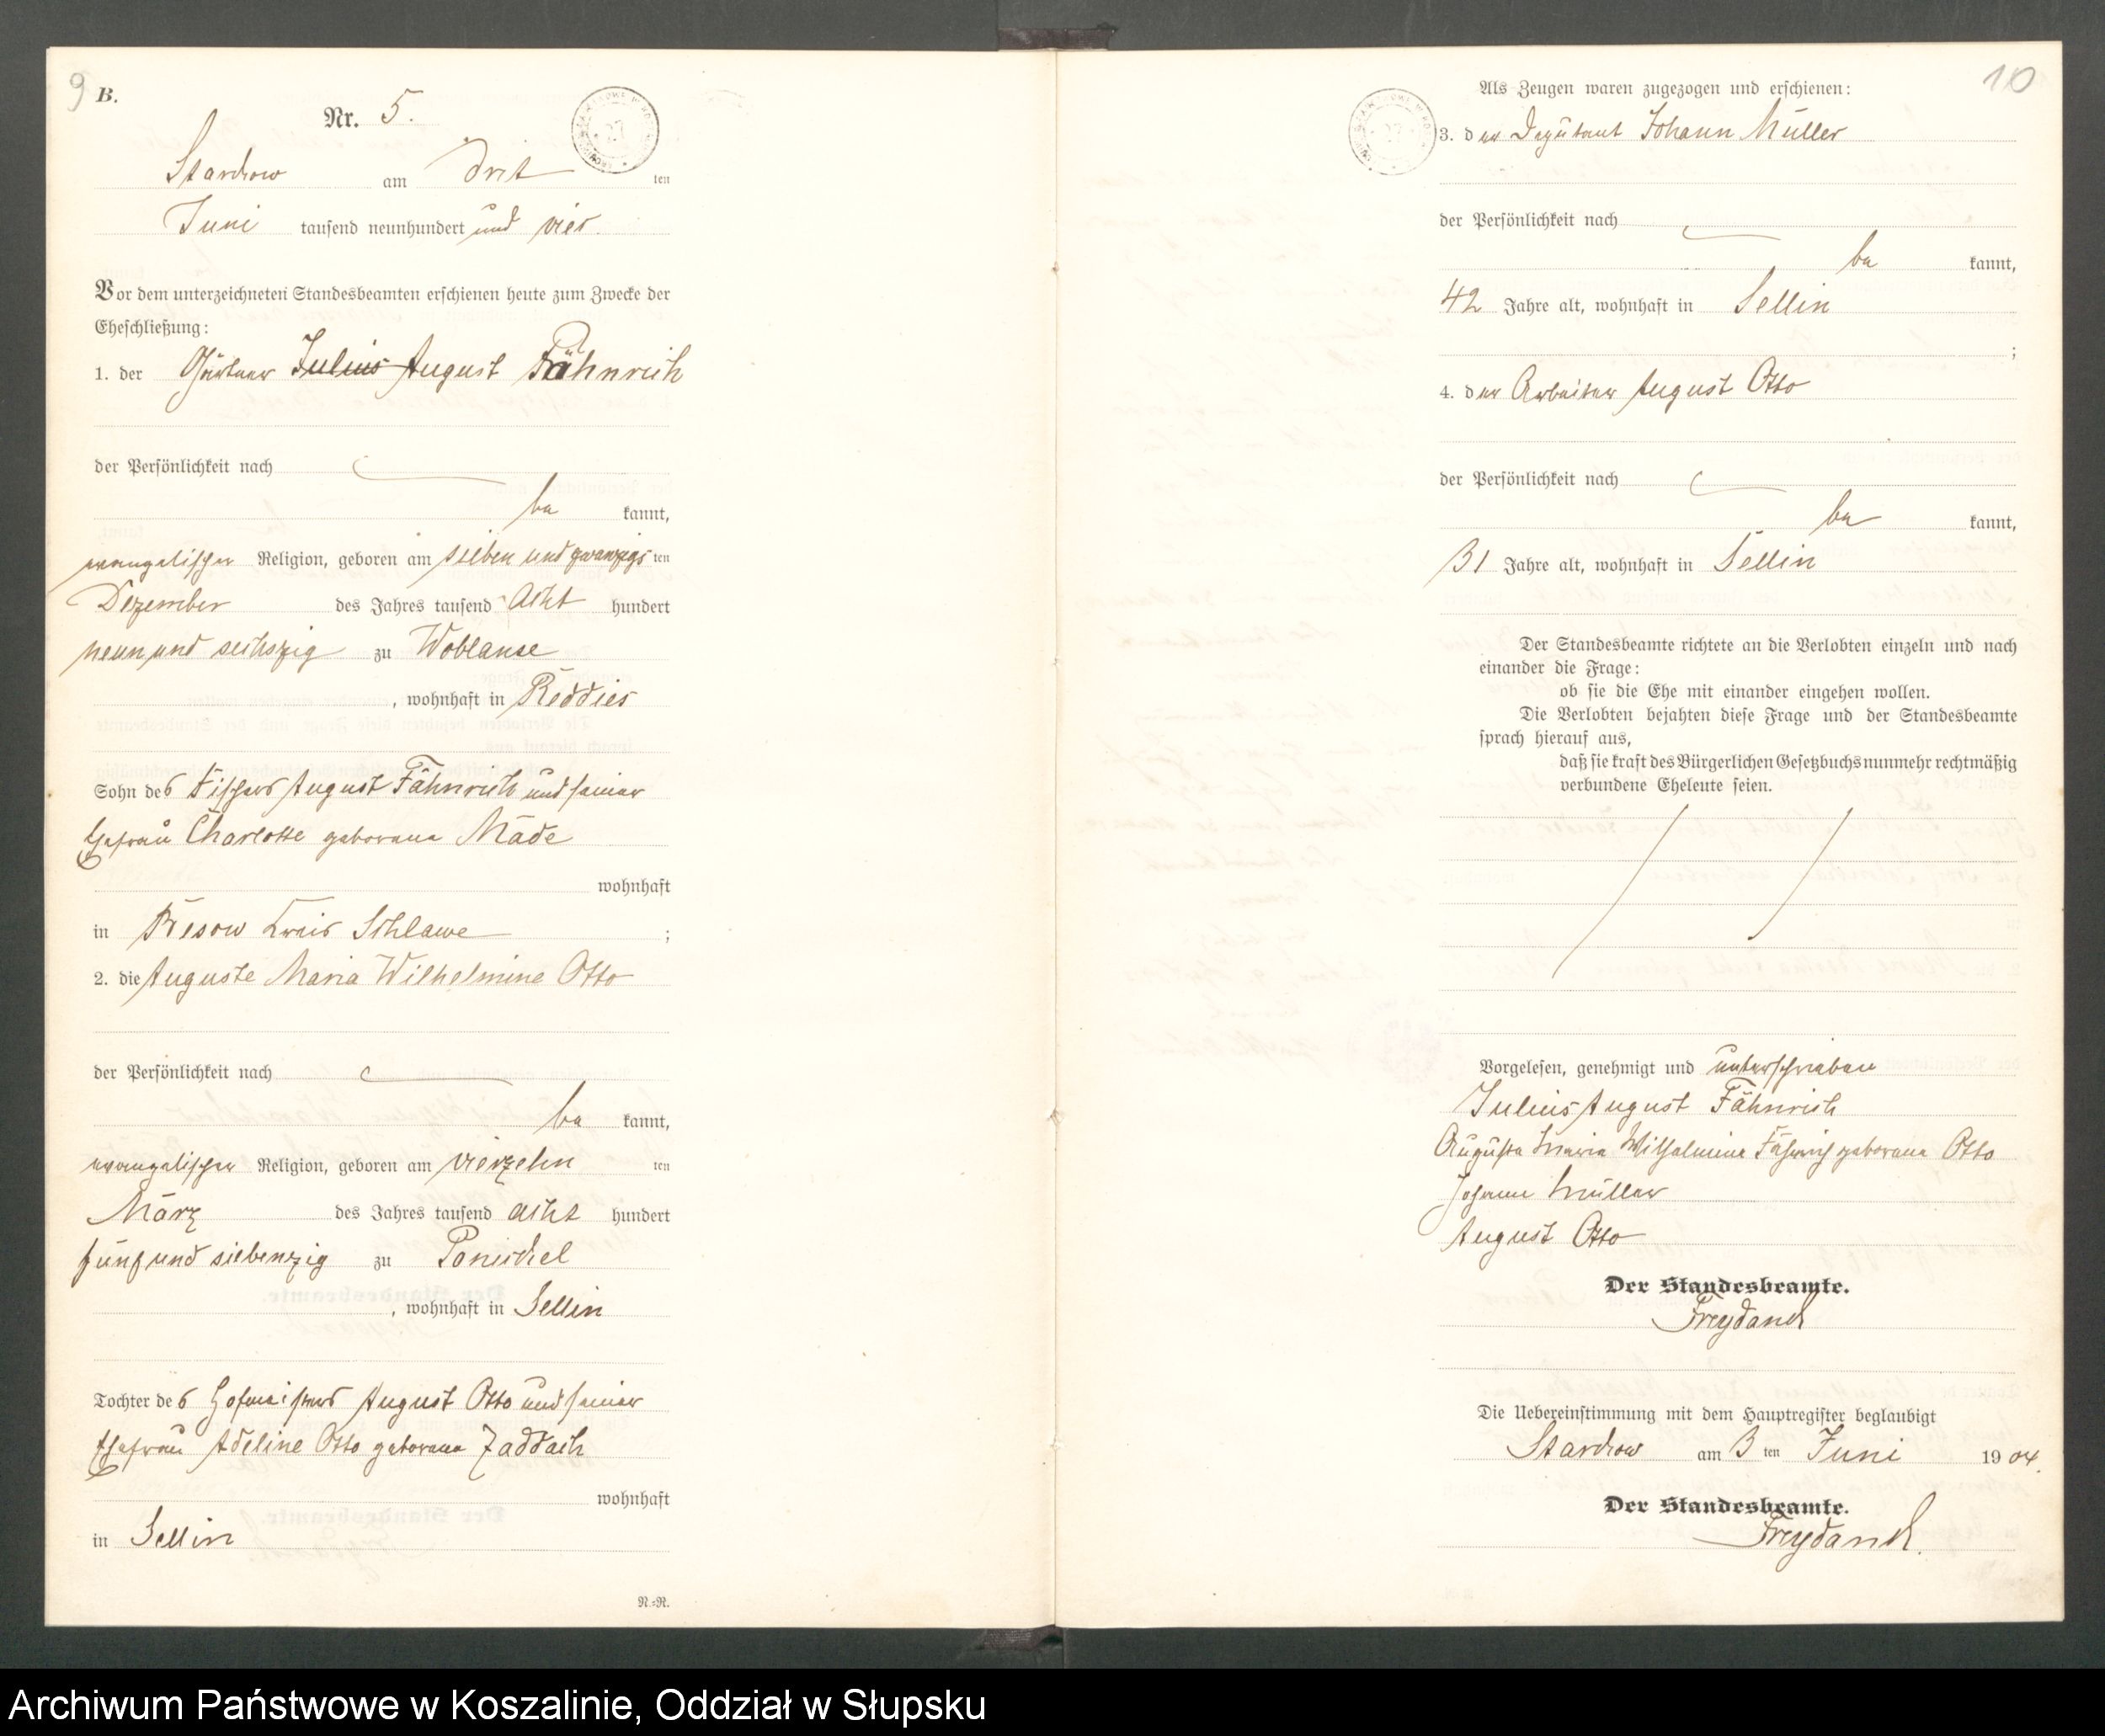 9
B.
Nr. 5.
Starckow am Drit ten
Juni tausend neunhundert und vier.
Vor dem unterzeichneten Standesbeamten erschienen heute zum Zwecke der
Eheschließung:
1. der Gärtner Julius August Fähnrich
der Persönlichkeit nach
be kannt,
evangelischer Religion, geboren am sieben und zwanzigs ten
Dezember des Jahres tausend Acht hundert
neun und sechszig zu Woblanse
, wohnhaft in Reddies
Sohn des Fischers August Fähnrich und seiner
Ehefrau Charlotte geborene Mäde
wohnhaft
in Besow Kreis Schlawe ;
2. die Auguste Maria Wilhelmine Otto
der Persönlichkeit nach
be kannt,
evangelischer Religion, geboren am vierzehn ten
März des Jahres tausend acht hundert
fünf und siebenzig zu Ponickel
, wohnhaft in Sellin
Tochter des Hofmeisters August Otto und seiner
Ehefrau Adeline Otto geborene Zaddach
wohnhaft
in Sellin
N.=R.
10
Als Zeugen waren zugezogen und erschienen:
3. der Deputant Johann Müller
der Persönlichkeit nach
be kannt,
42 Jahre alt, wohnhaft in Sellin
;
4. der Arbeiter August Otto
der Persönlichkeit nach
be kannt,
31 Jahre alt, wohnhaft in Sellin
Der Standesbeamte richtete an die Verlobten einzeln und nach
einander die Frage:
ob sie die Ehe mit einander eingehen wollen.
Die Verlobten bejahten diese Frage und der Standesbeamte
sprach hierauf aus,
daß sie kraft des Bürgerlichen Gesetzbuchs nunmehr rechtmäßig
verbundene Eheleute seien.
Vorgelesen, genehmigt und unterschrieben
Julius August Fähnrich
Auguste Maria Wilhelmine Fähnrich geborene Otto
Johann Müller
August Otto
Der Standesbeamte.
Freydanck
Die Uebereinstimmung mit dem Hauptregister beglaubigt
Starckow am 3 ten Juni 19 04.
Der Standesbeamte.
Freydanck.
Archiwum Państwowe w Koszalinie, Oddział w Słupsku